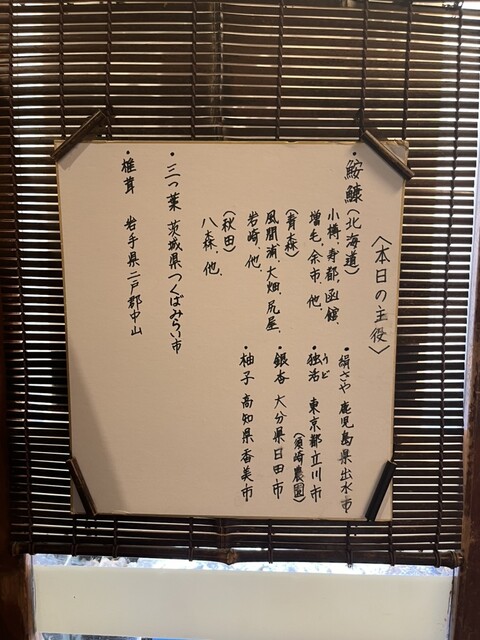 〈本日の主役〉
・鮟鱇(北海道)
小樽、寿都、函館、
増毛、余市、他、
(青森)
風間浦、大畑、尻屋、
岩崎、他、
(秋田)
八森、他、
・三つ葉 茨城県つくばみらい市
・椎茸 岩手県二戸郡中山
・絹さや 鹿児島県出水市
・独活 東京都立川市
うど
(須崎農園)
・銀杏 大分県日田市
・柚子 高知県香美市